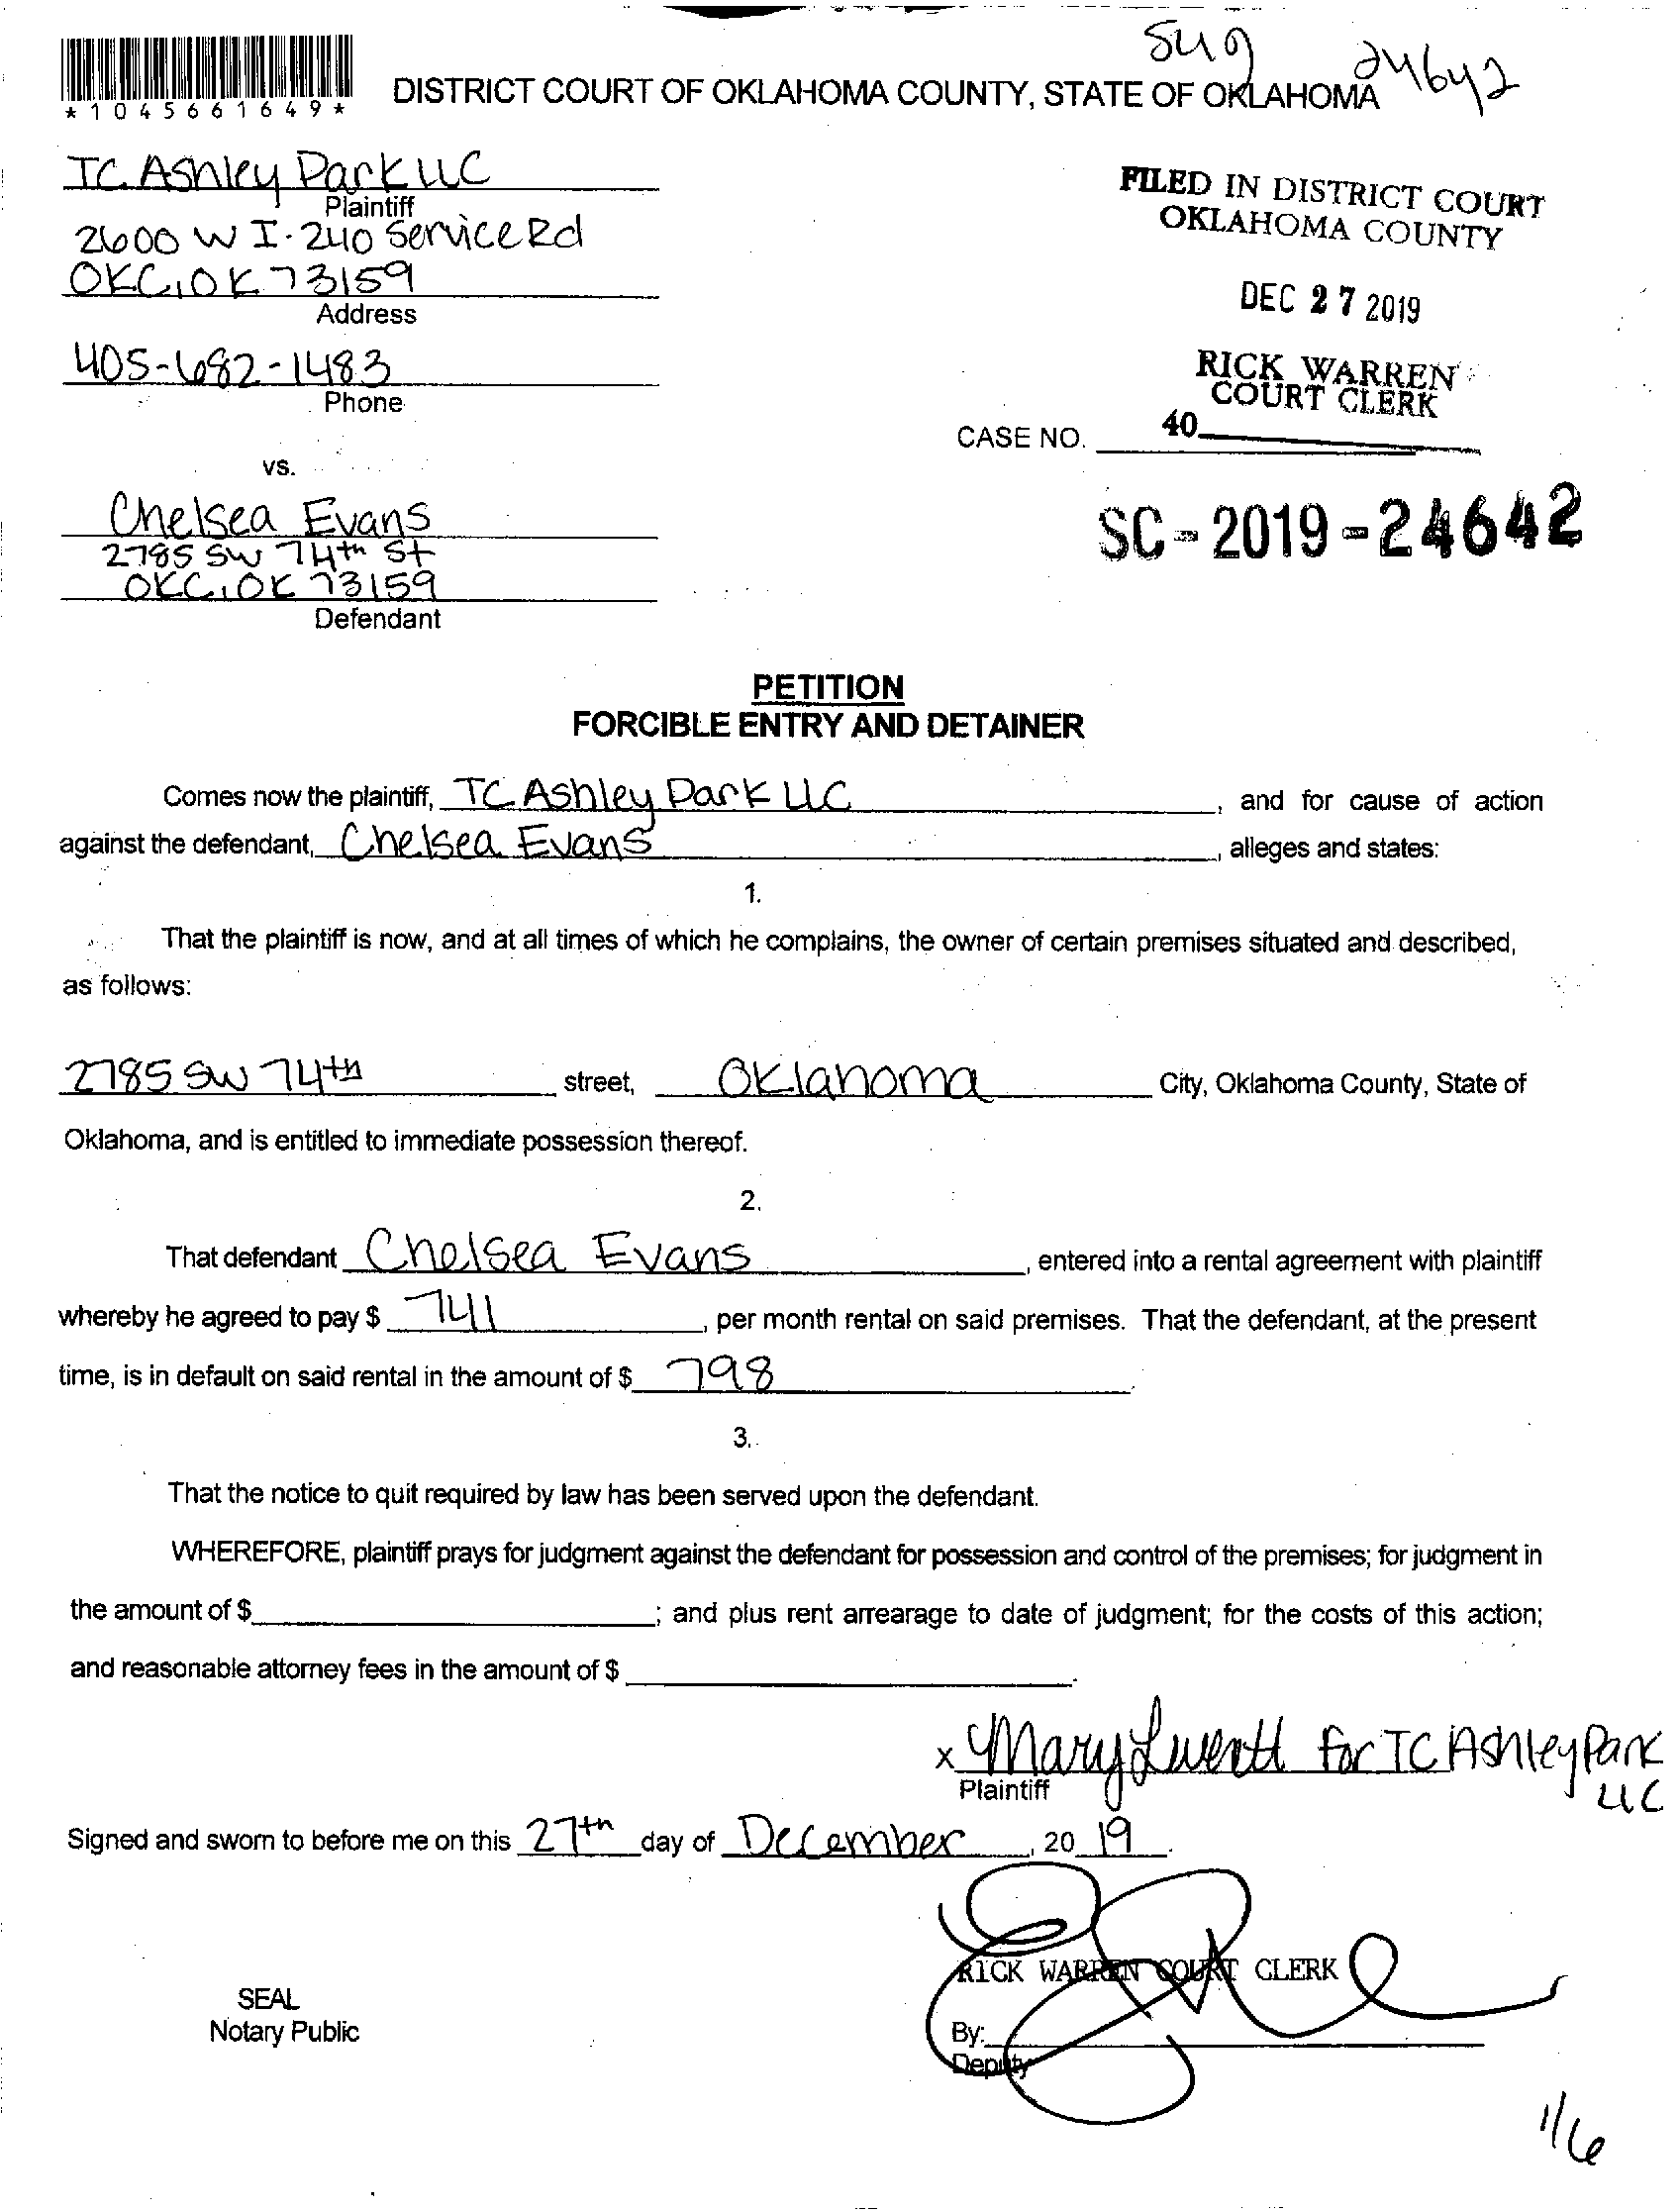 Sug 24642
*1045661649*
DISTRICT COURT OF OKLAHOMA COUNTY, STATE OF OKLAHOMA
TC Ashley Park LLC
Plaintiff
2600 W I-240 Service Rd
OKC, OK 73159
Address
405-682-1483
Phone
FILED IN DISTRICT COURT
OKLAHOMA COUNTY
DEC 27 2019
RICK WARREN
COURT CLERK
40
CASE NO.
SC-2019-24642
vs.
Chelsea Evans
2785 SW 74th St
OKC, OK 73159
Defendant
PETITION
FORCIBLE ENTRY AND DETAINER
Comes now the plaintiff, TC Ashley Park LLC, and for cause of action
against the defendant, Chelsea Evans, alleges and states:
1.
That the plaintiff is now, and at all times of which he complains, the owner of certain premises situated and described,
as follows:
2785 SW 74th street, Oklahoma City, Oklahoma County, State of
Oklahoma, and is entitled to immediate possession thereof.
2.
That defendant Chelsea Evans, entered into a rental agreement with plaintiff
whereby he agreed to pay $ 741, per month rental on said premises. That the defendant, at the present
time, is in default on said rental in the amount of $ 798.
3.
That the notice to quit required by law has been served upon the defendant.
WHEREFORE, plaintiff prays for judgment against the defendant for possession and control of the premises; for judgment in
the amount of $ ; and plus rent arrearage to date of judgment; for the costs of this action;
and reasonable attorney fees in the amount of $ .
x Mary for TC Ashley Park
LLC
Plaintiff
Signed and sworn to before me on this 27th day of December, 2019.
RICK WARREN COURT CLERK
SEAL
Notary Public
By:
Deputy
1/6